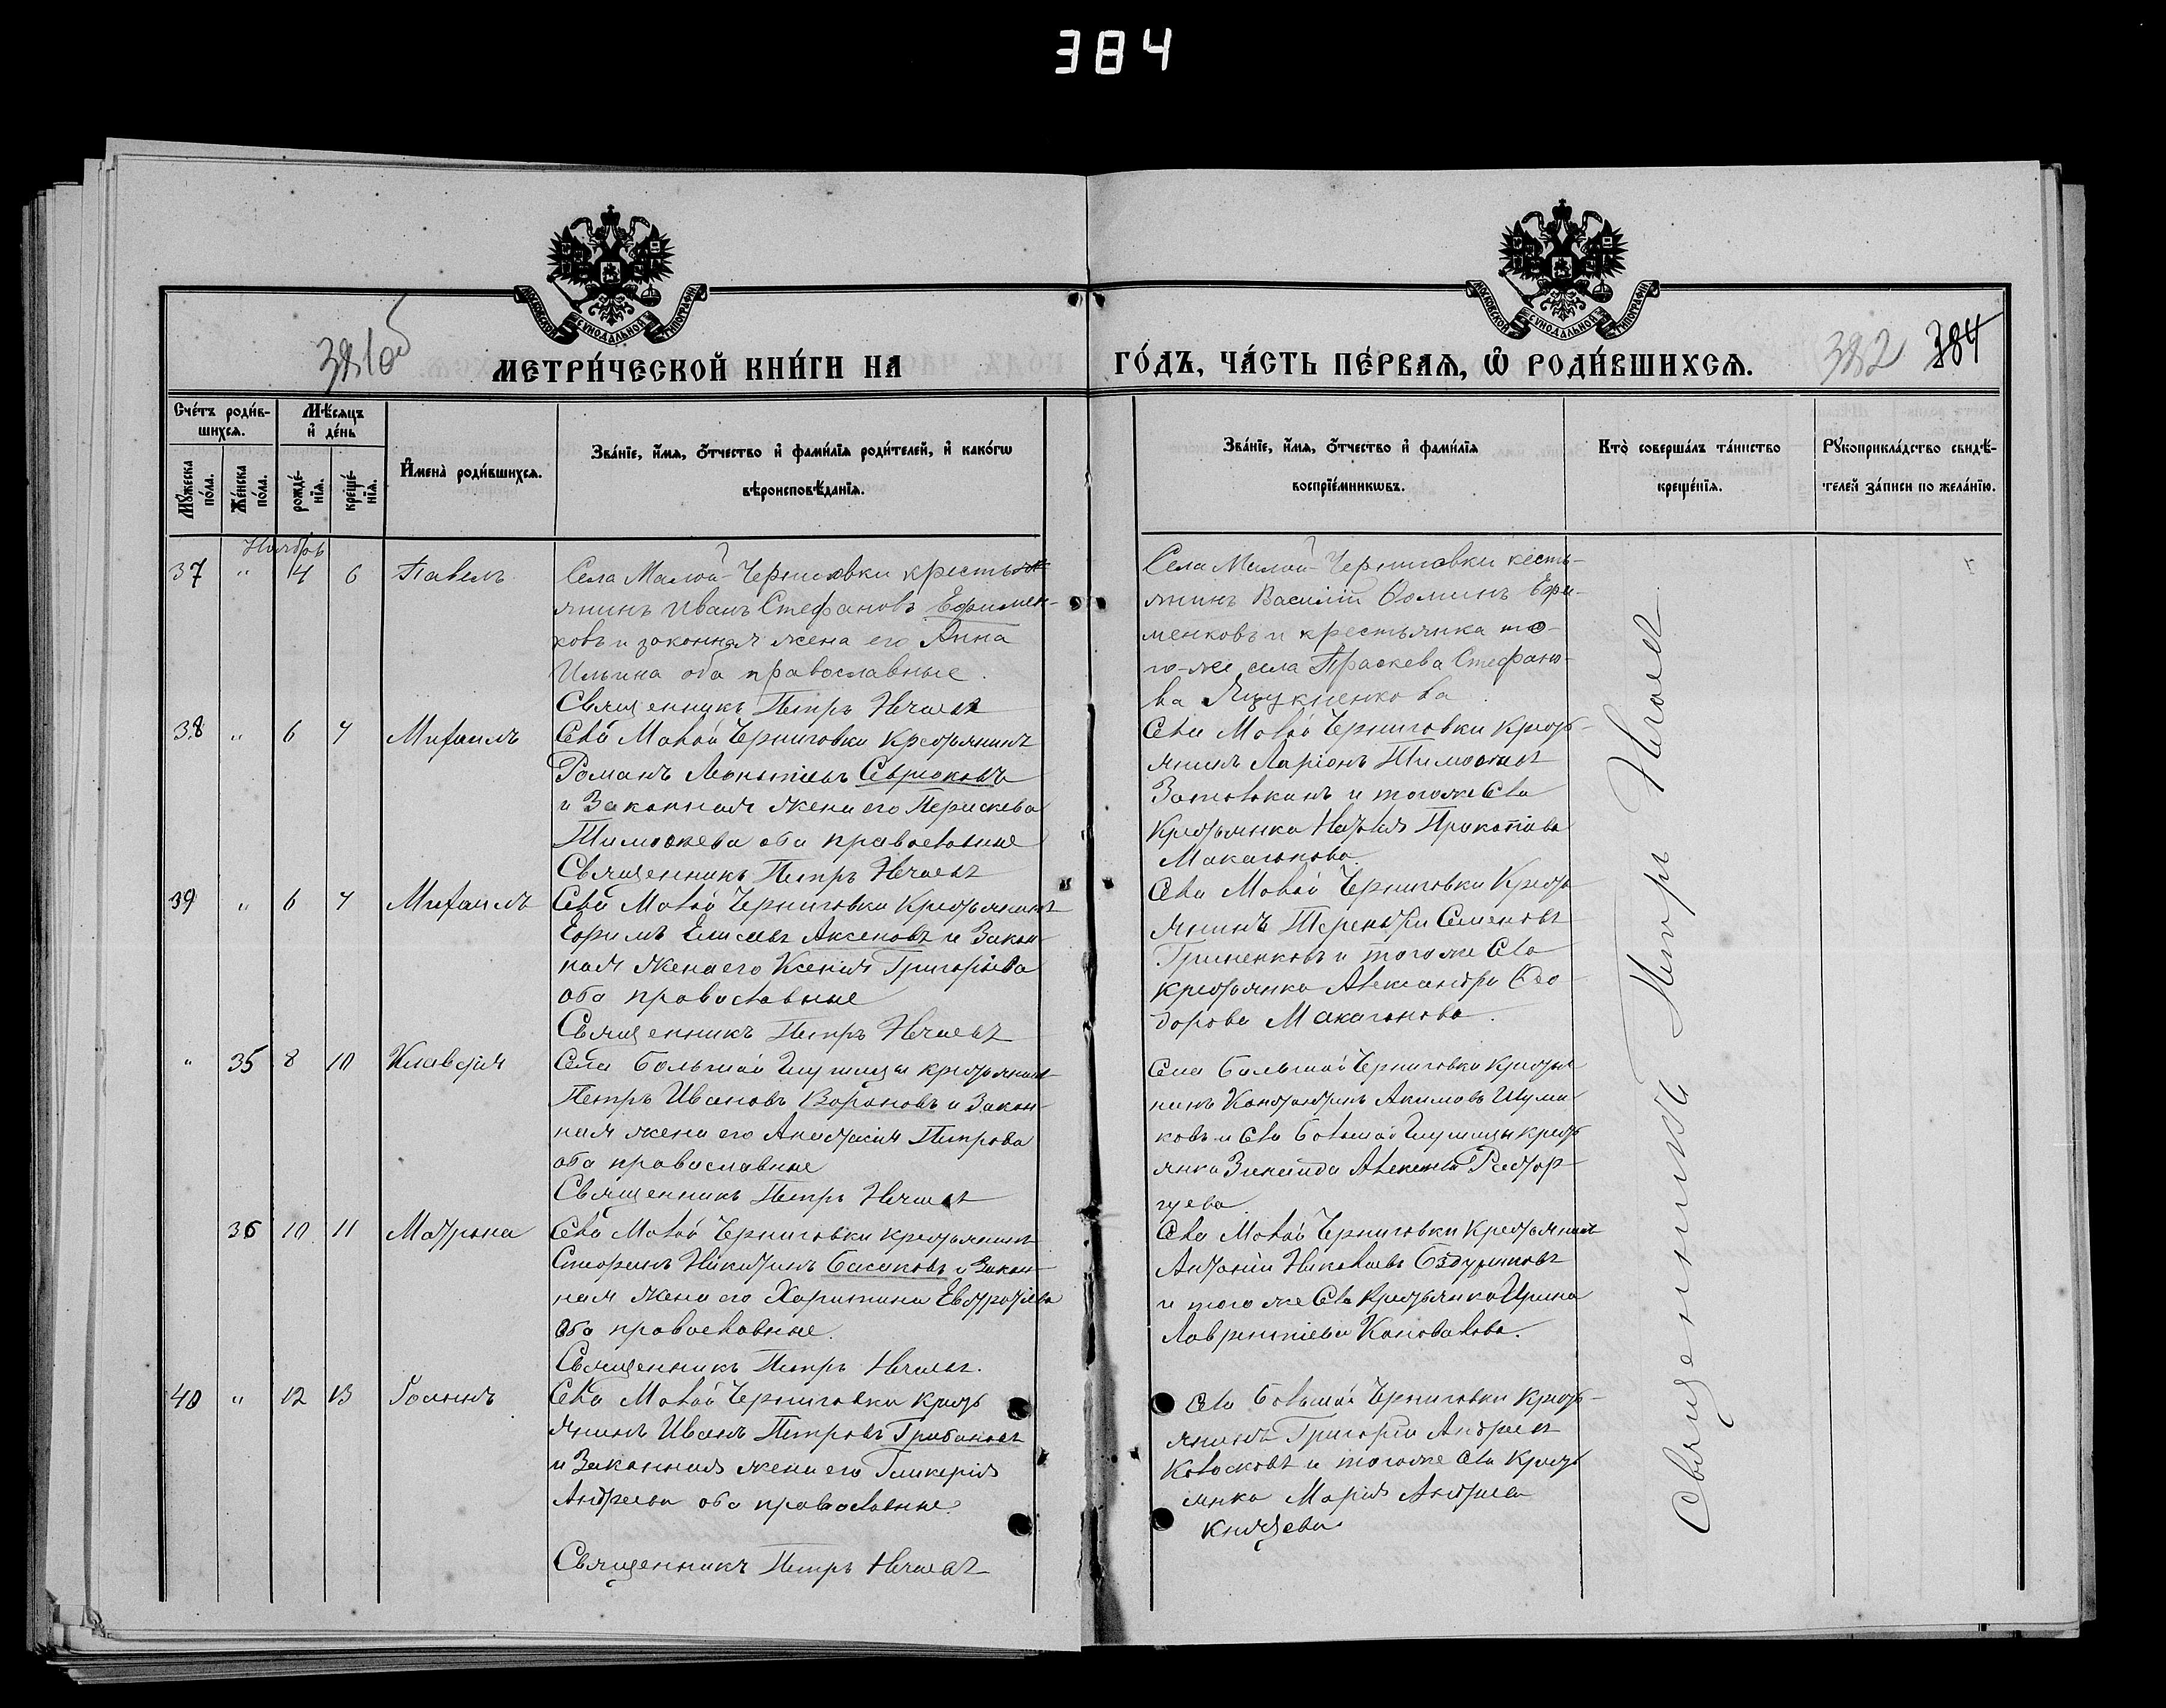 384
МОСКОВСКОЙ СѴНОДАЛЬНОЙ ТИПОГРАФІИ
МОСКОВСКОЙ СѴНОДАЛЬНОЙ ТИПОГРАФІИ
381об
МЕТРИ́ЧЕСКОЙ КНИ́ГИ НА
ГО́ДЪ, ЧА́СТЬ ПЕ́РВАѦ, Ѡ҆ РОДИ́ВШИХСѦ.
382 384
Сче́тъ роди́в-
шихсѧ.
Мѣ́сѧцъ
и҆ де́нь
Мꙋ́жеска
по́ла.
Же́нска
по́ла.
рожде́-
нїѧ.
креще́-
нїѧ.
И҆мена̀ роди́вшихсѧ.
Зва́нїе, и҆́мѧ, ѻ҆́тчество и҆ фами́лїѧ роди́телей, и҆ како́гѡ
вѣроисповѣ́данїѧ.
Зва́нїе, и҆́мѧ, ѻ҆́тчество и҆ фами́лїѧ
воспрїе́мникѡвъ.
Кто̀ соверша́лъ та́инство
креще́нїѧ.
Рꙋкоприкла́дство свидѣ́-
телей за́писи по жела́нїю.
Ноябрь
37 " 4 6 Павелъ
Села Малой-Черниговки кресть
янинъ Иванъ Стефановъ Ефимен-
ковъ и законная жена его Анна
Ильина оба православные.
Священникъ Петръ Нечаевъ
Села Малой-Черниговки кесть-
янинъ Василій Ѳоминъ Ефи-
менковъ и крестьянка то-
го-же села Праскева Стефано-
ва
38 " 6 7 Михаилъ
Села Малой Черниговки Крестьянинъ
Романъ Леонтіевъ Севрюковъ
и Законная жена его Параскева
Тимоѳеева оба православные
Священникъ Петръ Нечаевъ
Села Малой Черниговки Кресть-
янинъ Ларіонъ Тимоѳеевъ
и тогоже Села
Крестьянка Прокопіева
Макагонова.
39 " 6 7 Михаилъ
Села Малой Черниговки Крестьянинъ
Ефимъ Елисеевъ Аксеновъ и Закон-
ная жена его Ксенія Григорьева
оба православные
Священникъ Петръ Нечаевъ
Села Малой Черниговки Кресть
янинъ Терентій Семеновъ
Гриненковъ и тогоже Села
крестьянка Александра Ѳео-
дорова Макагонова.
" 35 8 10 Клавдія
Села Большой Глушицы крестьянинъ
Петръ Ивановъ Вороновъ и Закон-
ная жена его Анастасія Петрова
оба православные
Священникъ Петръ Нечаевъ
Села Большой Черниговки Крестья
нинъ Константинъ Акимовъ Шума
ковъ и Села Большой Глушицы кресть
янка Зинаида Алексеева Растор-
гуева
36 10 11 Матрона
Села Малой Черниговки крестьянинъ
Стефанъ Никитинъ Басаковъ и Закон-
ная жена его Харитина
Оба православные.
Священникъ Петръ Нечаевъ.
Села Малой Черниговки Крестьянинъ
Антоній Николаевъ
и того же Села Крестьянка Ирина
Лаврентіева Коновалова.
40 " 12 13 Іоаннъ
Села Малой Черниговки Кресть
янинъ Иванъ Петровъ Грибановъ
и Законная жена его Гликерія
Андреева оба православные.
Священникъ Петръ Нечаевъ
Села Большой Черниговки Кресть-
янинъ Григорій Андреевъ
Колосковъ и тогоже Села Кресть
янка Марія Андреева
Князева
Священникъ Петръ Нечаевъ